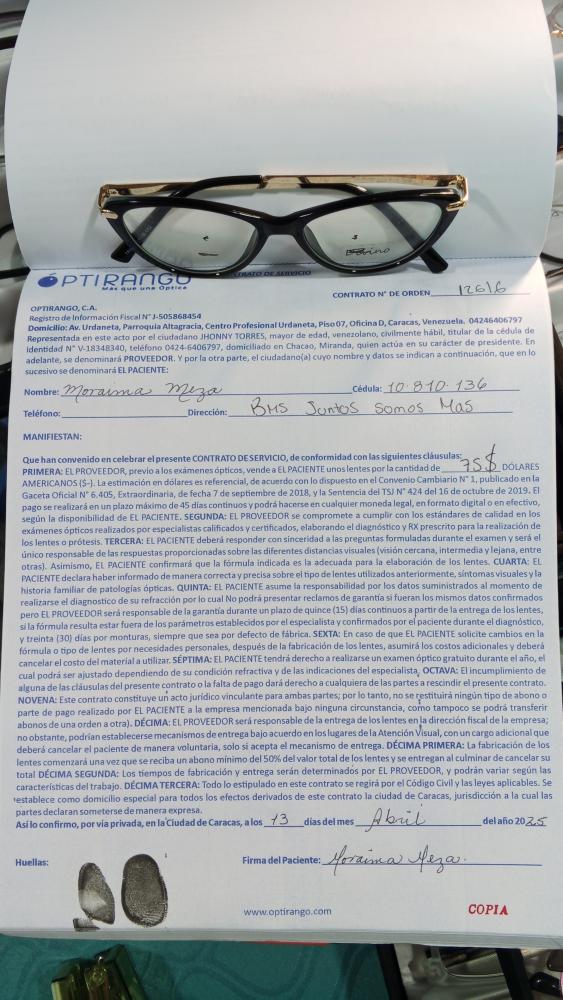 ÓPTIRANGO
Más que una Óptica
CONTRATO DE SERVICIO
Divino
CONTRATO N° DE ORDEN 12616
OPTIRANGO, C.A.
Registro de Información Fiscal N° J-505868454
Domicilio: Av. Urdaneta, Parroquia Altagracia, Centro Profesional Urdaneta, Piso 07, Oficina D, Caracas, Venezuela. 04246406797
Representada en este acto por el ciudadano JHONNY TORRES, mayor de edad, venezolano, civilmente hábil, titular de la cédula de
identidad N° V-18348340, teléfono 0424-6406797, domiciliado en Chacao, Miranda, quien actúa en su carácter de presidente. En
adelante, se denominará PROVEEDOR. Y por la otra parte, el ciudadano(a) cuyo nombre y datos se indican a continuación, que en lo
sucesivo se denominará EL PACIENTE:
Nombre: Moraima Meza Cédula: 10.810.136
Teléfono: Dirección: BMS Juntos Somos Mas
MANIFIESTAN:
Que han convenido en celebrar el presente CONTRATO DE SERVICIO, de conformidad con las siguientes cláusulas:
PRIMERA: EL PROVEEDOR, previo a los exámenes ópticos, vende a EL PACIENTE unos lentes por la cantidad de 75$ DÓLARES
AMERICANOS ($-). La estimación en dólares es referencial, de acuerdo con lo dispuesto en el Convenio Cambiario N° 1, publicado en la
Gaceta Oficial N° 6.405, Extraordinaria, de fecha 7 de septiembre de 2018, y la Sentencia del TSJ N° 424 del 16 de octubre de 2019. El
pago se realizará en un plazo máximo de 45 días continuos y podrá hacerse en cualquier moneda legal, en formato digital o en efectivo,
según la disponibilidad de EL PACIENTE. SEGUNDA: EL PROVEEDOR se compromete a cumplir con los estándares de calidad en los
exámenes ópticos realizados por especialistas calificados y certificados, elaborando el diagnóstico y RX prescrito para la realización de
los lentes o prótesis. TERCERA: EL PACIENTE deberá responder con sinceridad a las preguntas formuladas durante el examen y será el
único responsable de las respuestas proporcionadas sobre las diferentes distancias visuales (visión cercana, intermedia y lejana, entre
otras). Asimismo, EL PACIENTE confirmará que la fórmula indicada es la adecuada para la elaboración de los lentes. CUARTA: EL
PACIENTE declara haber informado de manera correcta y precisa sobre el tipo de lentes utilizados anteriormente, síntomas visuales y la
historia familiar de patologías ópticas. QUINTA: EL PACIENTE asume la responsabilidad por los datos suministrados al momento de
realizarse el diagnostico de su refracción por lo cual No podrá presentar reclamos de garantía si fueran los mismos datos confirmados
pero EL PROVEEDOR será responsable de la garantía durante un plazo de quince (15) días continuos a partir de la entrega de los lentes,
si la fórmula resulta estar fuera de los parámetros establecidos por el especialista y confirmados por el paciente durante el diagnóstico,
y treinta (30) días por monturas, siempre que sea por defecto de fábrica. SEXTA: En caso de que EL PACIENTE solicite cambios en la
fórmula o tipo de lentes por necesidades personales, después de la fabricación de los lentes, asumirá los costos adicionales y deberá
cancelar el costo del material a utilizar. SÉPTIMA: EL PACIENTE tendrá derecho a realizarse un examen óptico gratuito durante el año, el
cual podrá ser ajustado dependiendo de su condición refractiva y de las indicaciones del especialista. OCTAVA: El incumplimiento de
alguna de las cláusulas del presente contrato o la falta de pago dará derecho a cualquiera de las partes a rescindir el presente contrato.
NOVENA: Este contrato constituye un acto jurídico vinculante para ambas partes; por lo tanto, no se restituirá ningún tipo de abono o
parte de pago realizado por EL PACIENTE a la empresa mencionada bajo ninguna circunstancia, como tampoco se podrá transferir
abonos de una orden a otra). DÉCIMA: EL PROVEEDOR será responsable de la entrega de los lentes en la dirección fiscal de la empresa;
no obstante, podrían establecerse mecanismos de entrega bajo acuerdo en los lugares de la Atención Visual, con un cargo adicional que
deberá cancelar el paciente de manera voluntaria, solo si acepta el mecanismo de entrega. DÉCIMA PRIMERA: La fabricación de los
lentes comenzará una vez que se reciba un abono mínimo del 50% del valor total de los lentes y se entregan al culminar de cancelar su
total DÉCIMA SEGUNDA: Los tiempos de fabricación y entrega serán determinados por EL PROVEEDOR, y podrán variar según las
características del trabajo. DÉCIMA TERCERA: Todo lo estipulado en este contrato se regirá por el Código Civil y las leyes aplicables. Se
establece como domicilio especial para todos los efectos derivados de este contrato la ciudad de Caracas, jurisdicción a la cual las
partes declaran someterse de manera expresa.
Así lo confirmo, por vía privada, en la Ciudad de Caracas, a los 13 días del mes Abril del año 2025
Huellas: Firma del Paciente: Moraima Meza.
www.optirango.com COPIA